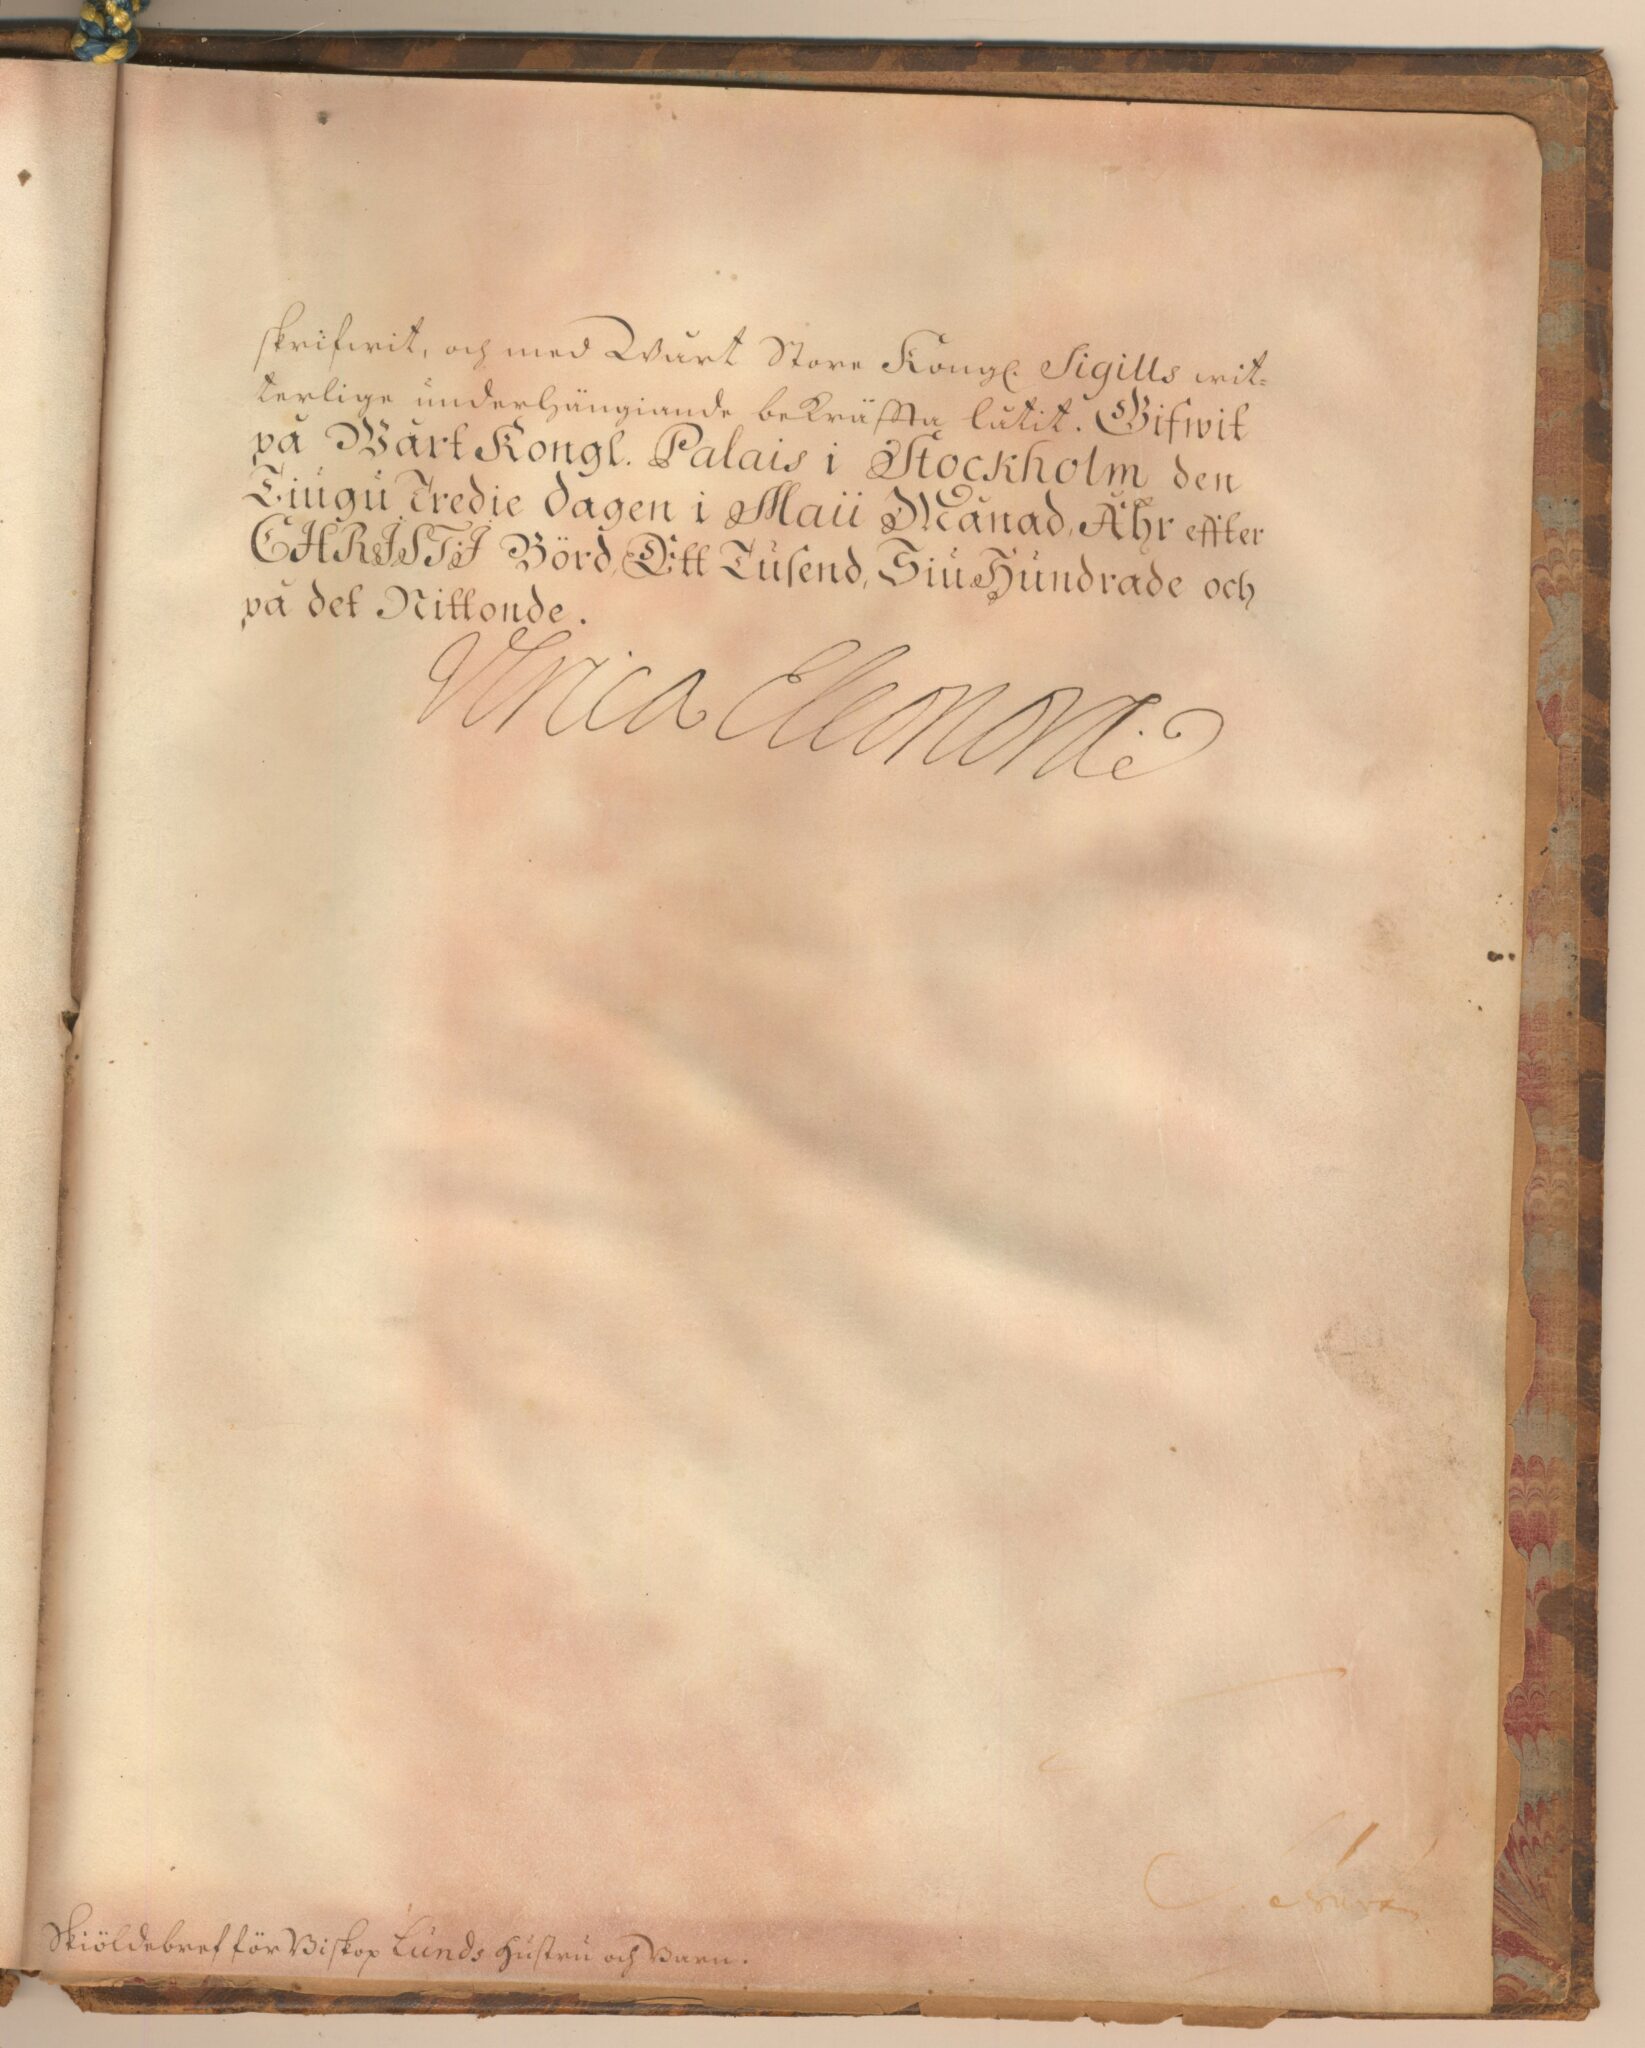 skrifwit, och med Wårt Store Kongl. Sigills wit-
terlige underhängiande bekräffta låtit. Gifwit
på Wårt Kongl. Palais i Stockholm den
Tiugu Tredie dagen i Maii Månad, Åhr effter
CHRISTI Börd, Ett Tusend, Siu Hundrade och
på det Nittonde.
Vlrica Eleonora
Skiöldebref för Biskop Lunds Hustru och Barn.